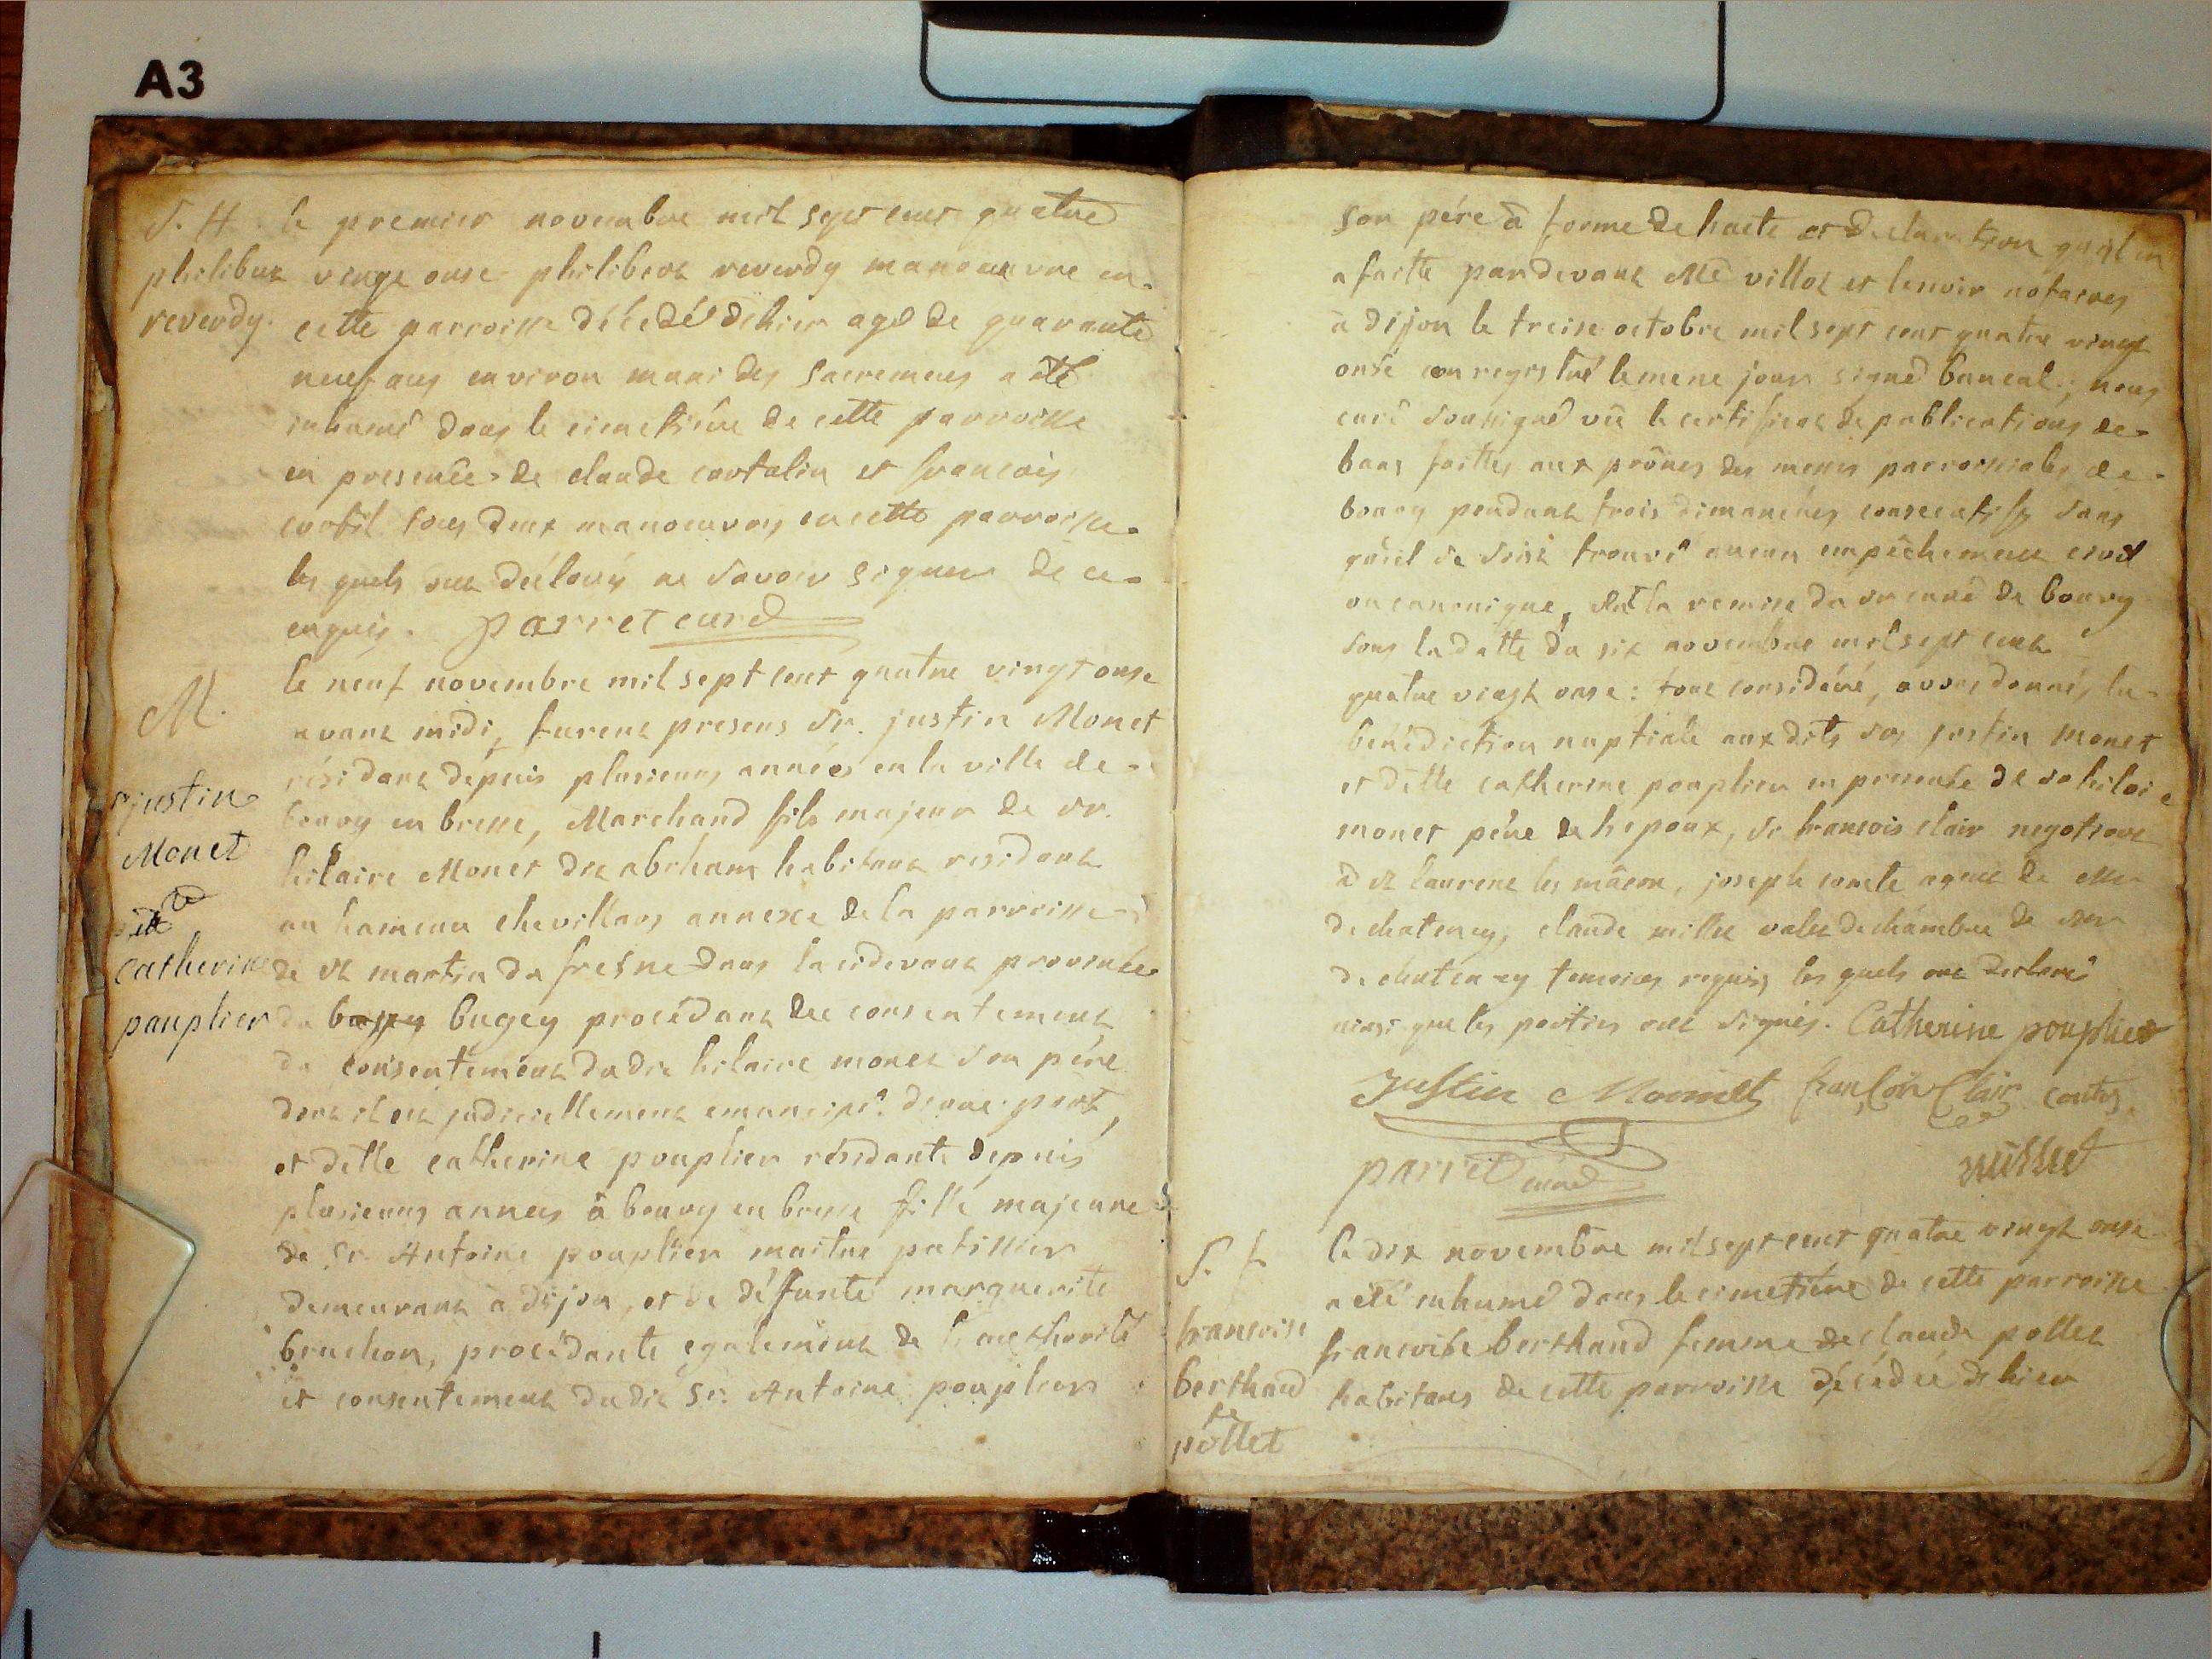 A3
S. H.
philibert
reverdy.
le premier novembre mil sept cent quatre
vingt onse philibert reverdy manoeuvre en
cette parroisse décedé dehier agé de quarante
neuf ans environ muni des sacremens a été
inhumé dans le cimetiére de cette parroisse
en presence de claude cortalin et francois
tous deux manoeuvres en cette parroisse
les quels ont déclarés ne savoir signer de ce
enquis. parret curé
M.
sr justin
Monet
et
catherine
pouplier
le neuf novembre mil sept cent quatre vingt onse
avant midi, furent presens Sr. justin Monet
résidant depuis plusieurs années en la ville de
bourg en bresse, Marchand fils majeur de sr.
hilaire Monet dit abrham habitant residant
au hameau chevillars annexe de la parroisse
de st martin du fresne dans la cidevant province
du bugey procédant du consentement
du consentement dudit hilaire monet son pére
dont il est judiciellement emancipé d'une part,
et dlle catherine pouplier résidante depuis
plusieurs annees à bourg en bresse fille majeure
de Sr Antoine pouplier maitre patissier
demeurant à dijon, et de défunte marguerite
bruchon, procédante egalement de l'authorité
et consentement dudit Sr. Antoine pouplier
son pére à forme de l'acte et declaration qu'il en
a faitte pardevant Me villot et lenoir notaires
à dijon le treise octobre mil sept cent quatre vingt
onse enregistré le meme jour signé buncal; nous
curé soussigné vû le certificat de publications de
bans faittes aux prônes des messes parroissiales de
bourg pendant trois dimanches consecutifs sans
qu'il se soit trouvé aucun empêchement civil
ou canonique, la remise du sr curé de bourg
sous la datte du six novembre mil sept cent
quatre vingt onse: tout considéré, avons donnés la
bénédiction nuptiale aux dits srs justin monet
et dlle catherine pouplier en presence de sr hilaire
monet pére de l'epoux, sr francois clair negotiant
à st laurent les mâcon, joseph comte agent de Mr
de chatenay, claude millet valet de chambre de Mr
de chatenay temoins requis, les quels ont declaré
ainsi que les parties ont signés. Catherine pouplier
Justin Monnet françois Clair
parret curé
S. f.
francoise
berthaud
fe
pollet
le dix novembre mil sept cent quatre vingt onse
a eté inhumé dans le cimetiére de cette parroisse
francoise berthaud femme de claude pollet
habitans de cette parroisse décédée dehier